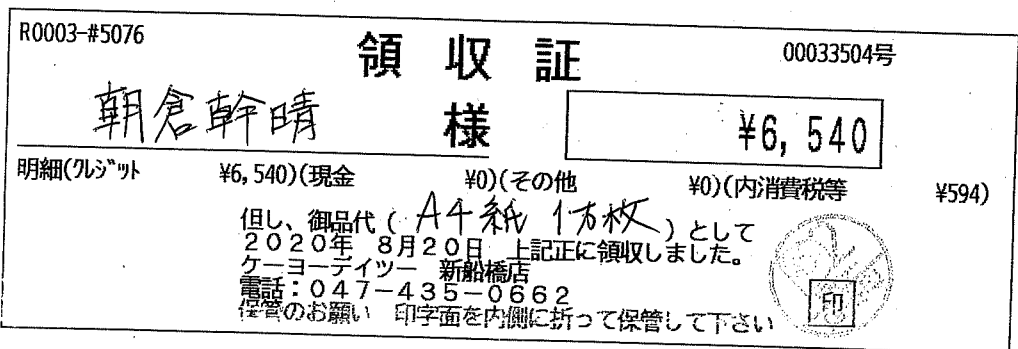 R0003-#5076
領収証
00033504号
朝倉幹晴 様
¥6,540
明細(クレジット ¥6,540)(現金 ¥0)(その他 ¥0)(内消費税等 ¥594)
但し、御品代(A4紙 1万枚)として
2020年 8月20日 上記正に領収しました。
ケーヨーデイツー 新船橋店
電話:047-435-0662
保管のお願い 印字面を内側に折って保管して下さい
印